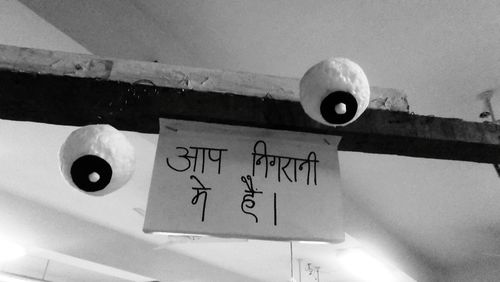 आप निगरानी
मे हैं।